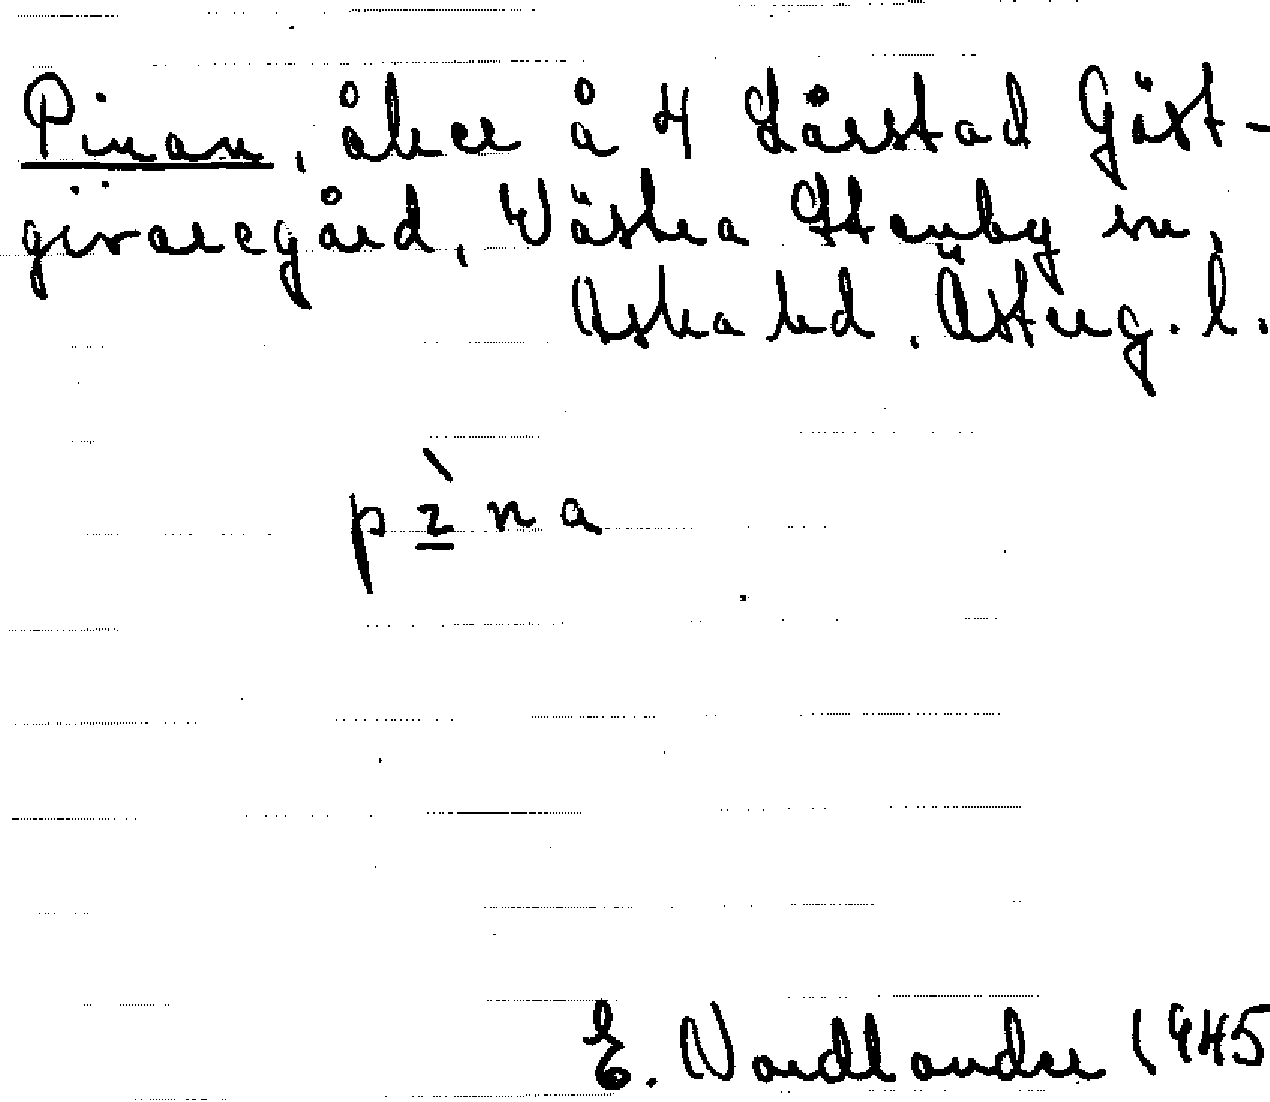 Pinan, åker å 4 Lårstad Gäst-
givaregård, Västra Stenby sn,
Aska hd. Österg. l.
pìna
E. Nordlander 1945